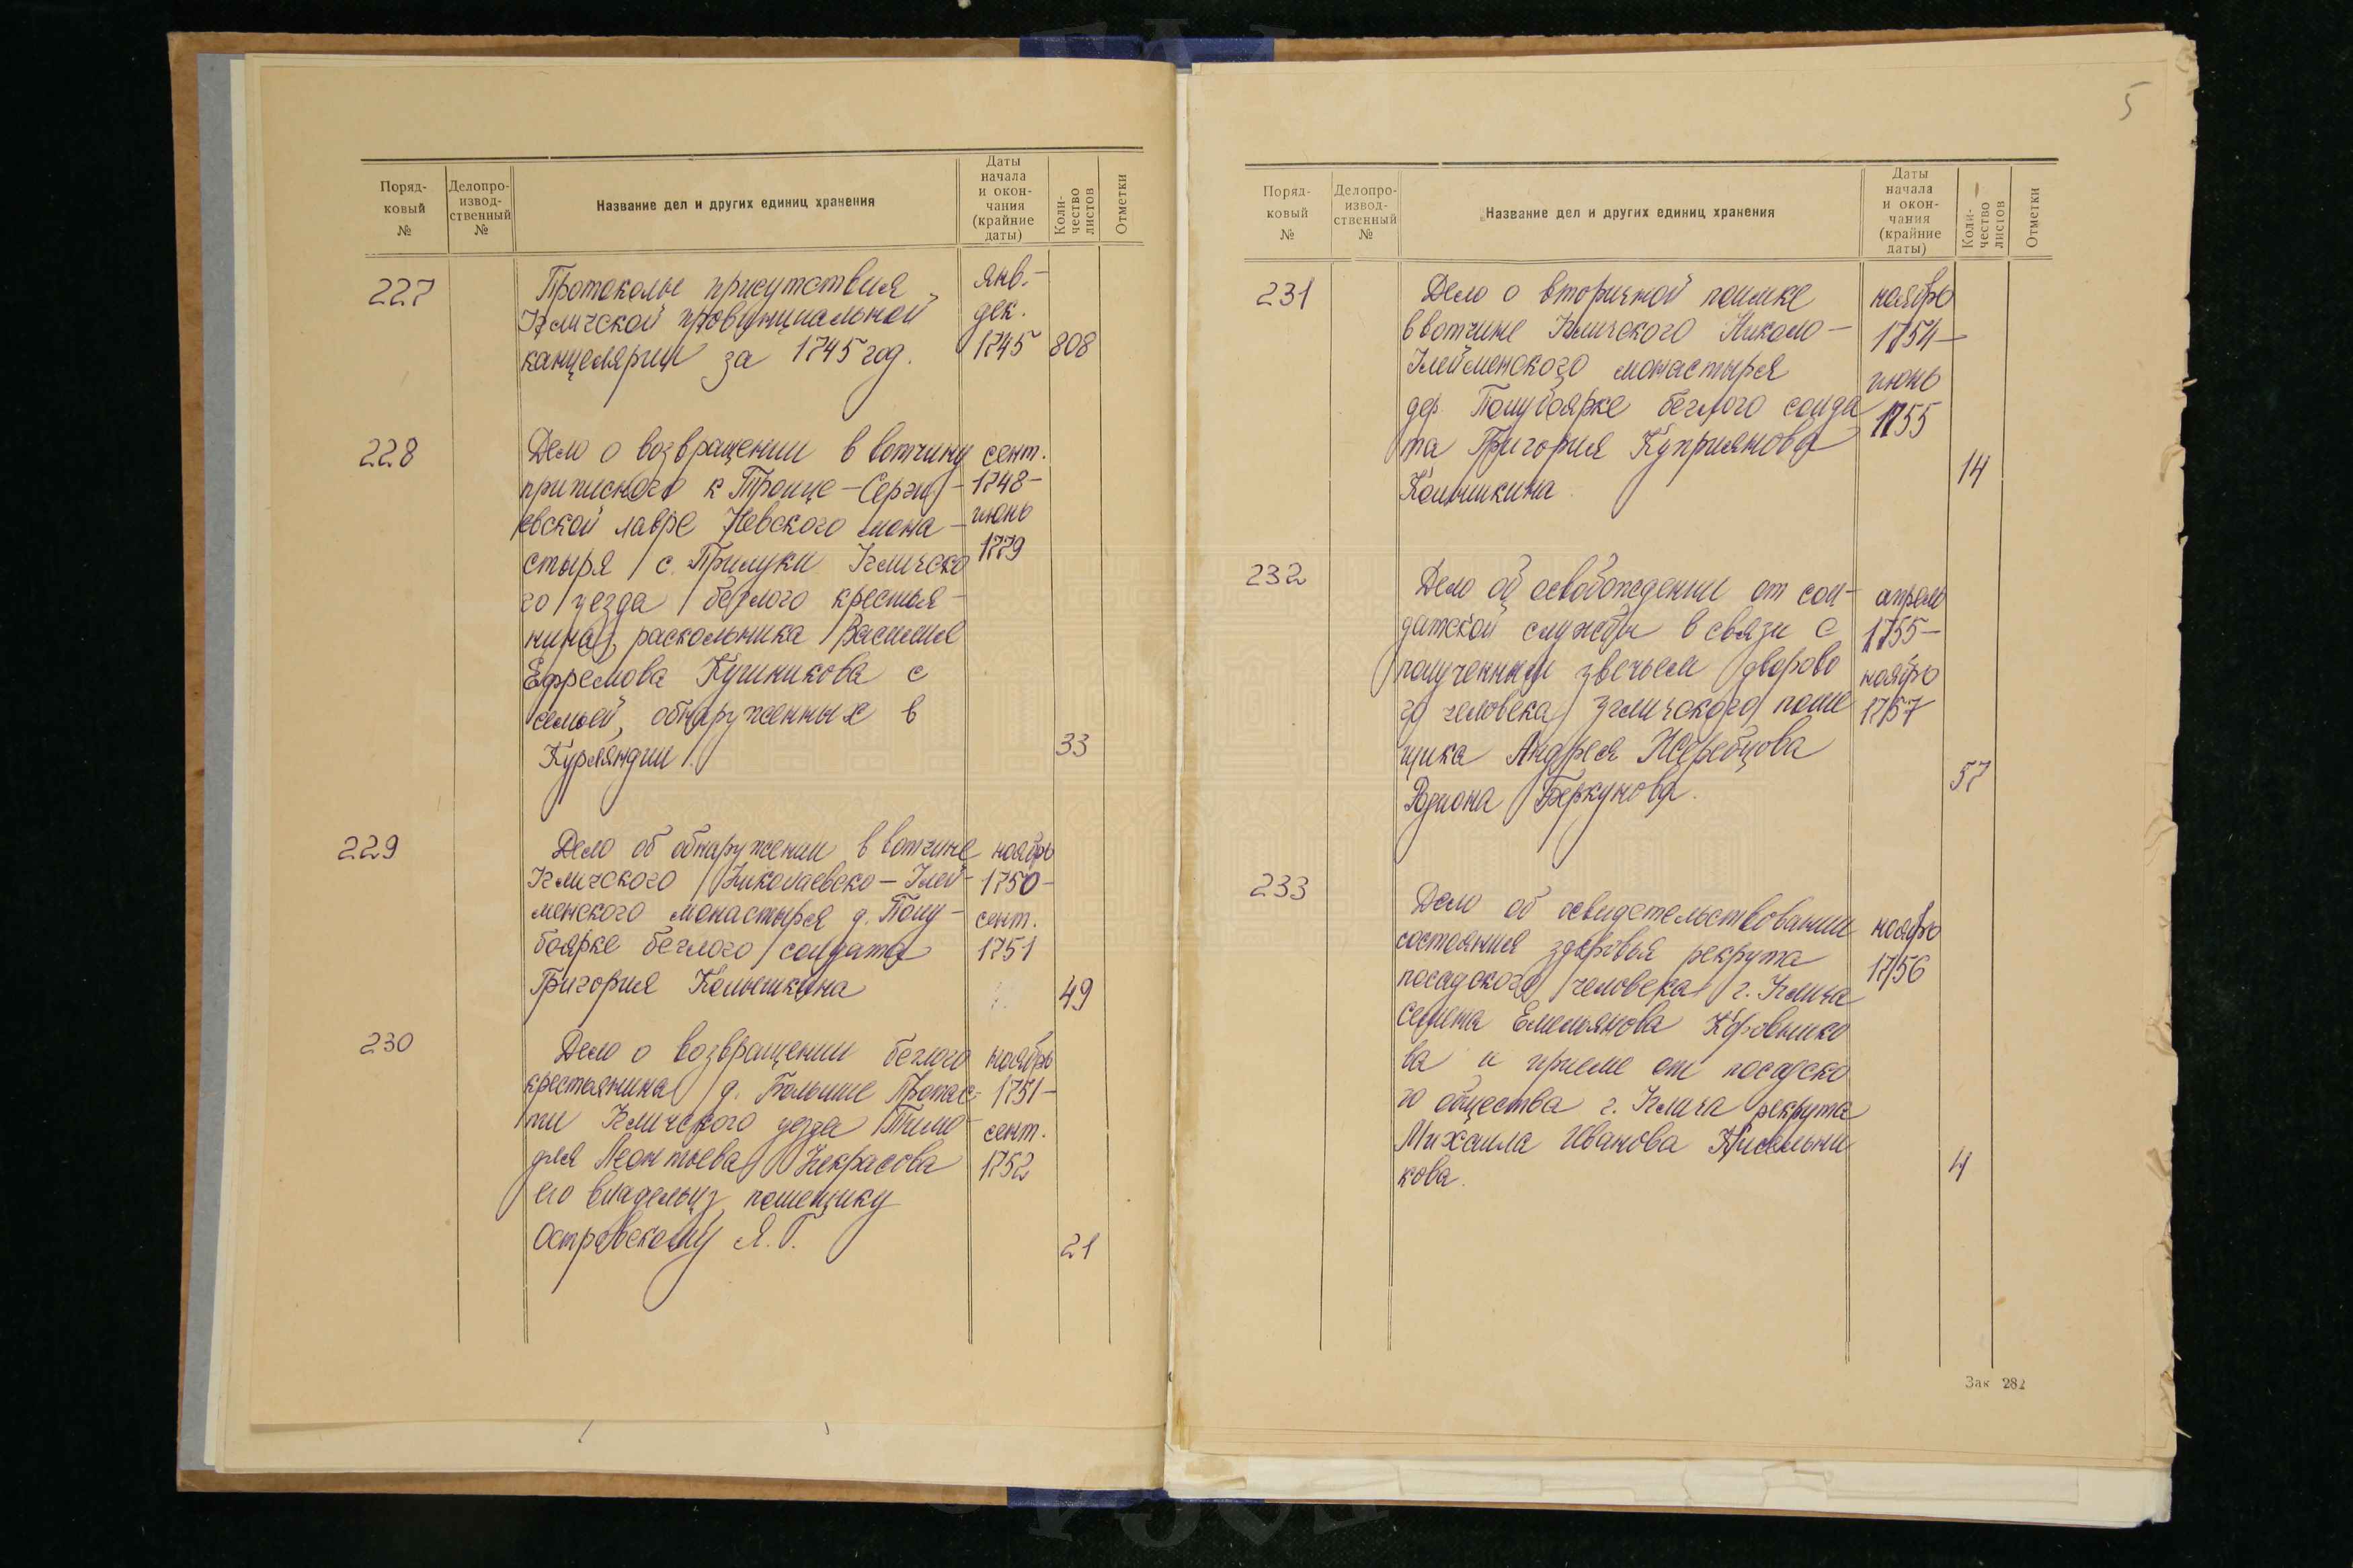 5
Поряд-
ковый
№
Делопро-
извод-
ственный
№
Название дел и других единиц хранения
Даты
начала
и окон-
чания
(крайние
даты)
Коли-
чество
листов
Отметки
227
Протоколы присутствия
Угличской провинциальной
канцелярии за 1745 год.
янв.-
дек.
1745
808
228
Дело о возвращении в вотчину
приписного к Троице-Серги-
евской лавре Невского мона-
стыря с. Прилуки Угличско
го уезда беглого крестья-
нина, раскольника Василия
Ефремова Кушникова с
семьей, обнаруженные в
Курляндии.
сент.
1748-
июнь
1779
33
229
Дело об обнаружении в вотчине
Угличского Николаевско-Улей-
менского монастыря д. Полу-
боярке беглого солдата
Григория Колышкина
ноябрь
1750-
сент.
1751
49
230
Дело о возвращении беглого
крестьянина д. Большие Пропас-
ти Угличского уезда Тимо-
фея Леонтьева Некрасова
его владельцу помещику
Островскому Я. Г.
ноябрь
1751-
сент.
1752
21
Поряд-
ковый
№
Делопро-
извод-
ственный
№
Название дел и других единиц хранения
Даты
начала
и окон-
чания
(крайние
даты)
Коли-
чество
листов
Отметки
231
Дело о вторичной поимке
в вотчине Угличского Николо-
Улейменского монастыря
дер. Полубоярке беглого солда
та Григория Куприянова
Колышкина
ноябрь
1754-
июнь
1755
14
232
Дело об освобождении от сол-
датской службы в связи с
полученным увечьем дворово
го человека угличского поме
щика Андрея Жеребцова
Родиона Беркунова.
апрель
1755-
ноябрь
1757
57
233
Дело об освидетельствовании
состояния здоровья рекрута
посадского человека г. Углича
Семена Емельянова Кровнико
ва и приеме от посадско
го общества г. Углича рекрута
Михаила Иванова Кисельни
кова.
ноябрь
1756
4
Зак 282